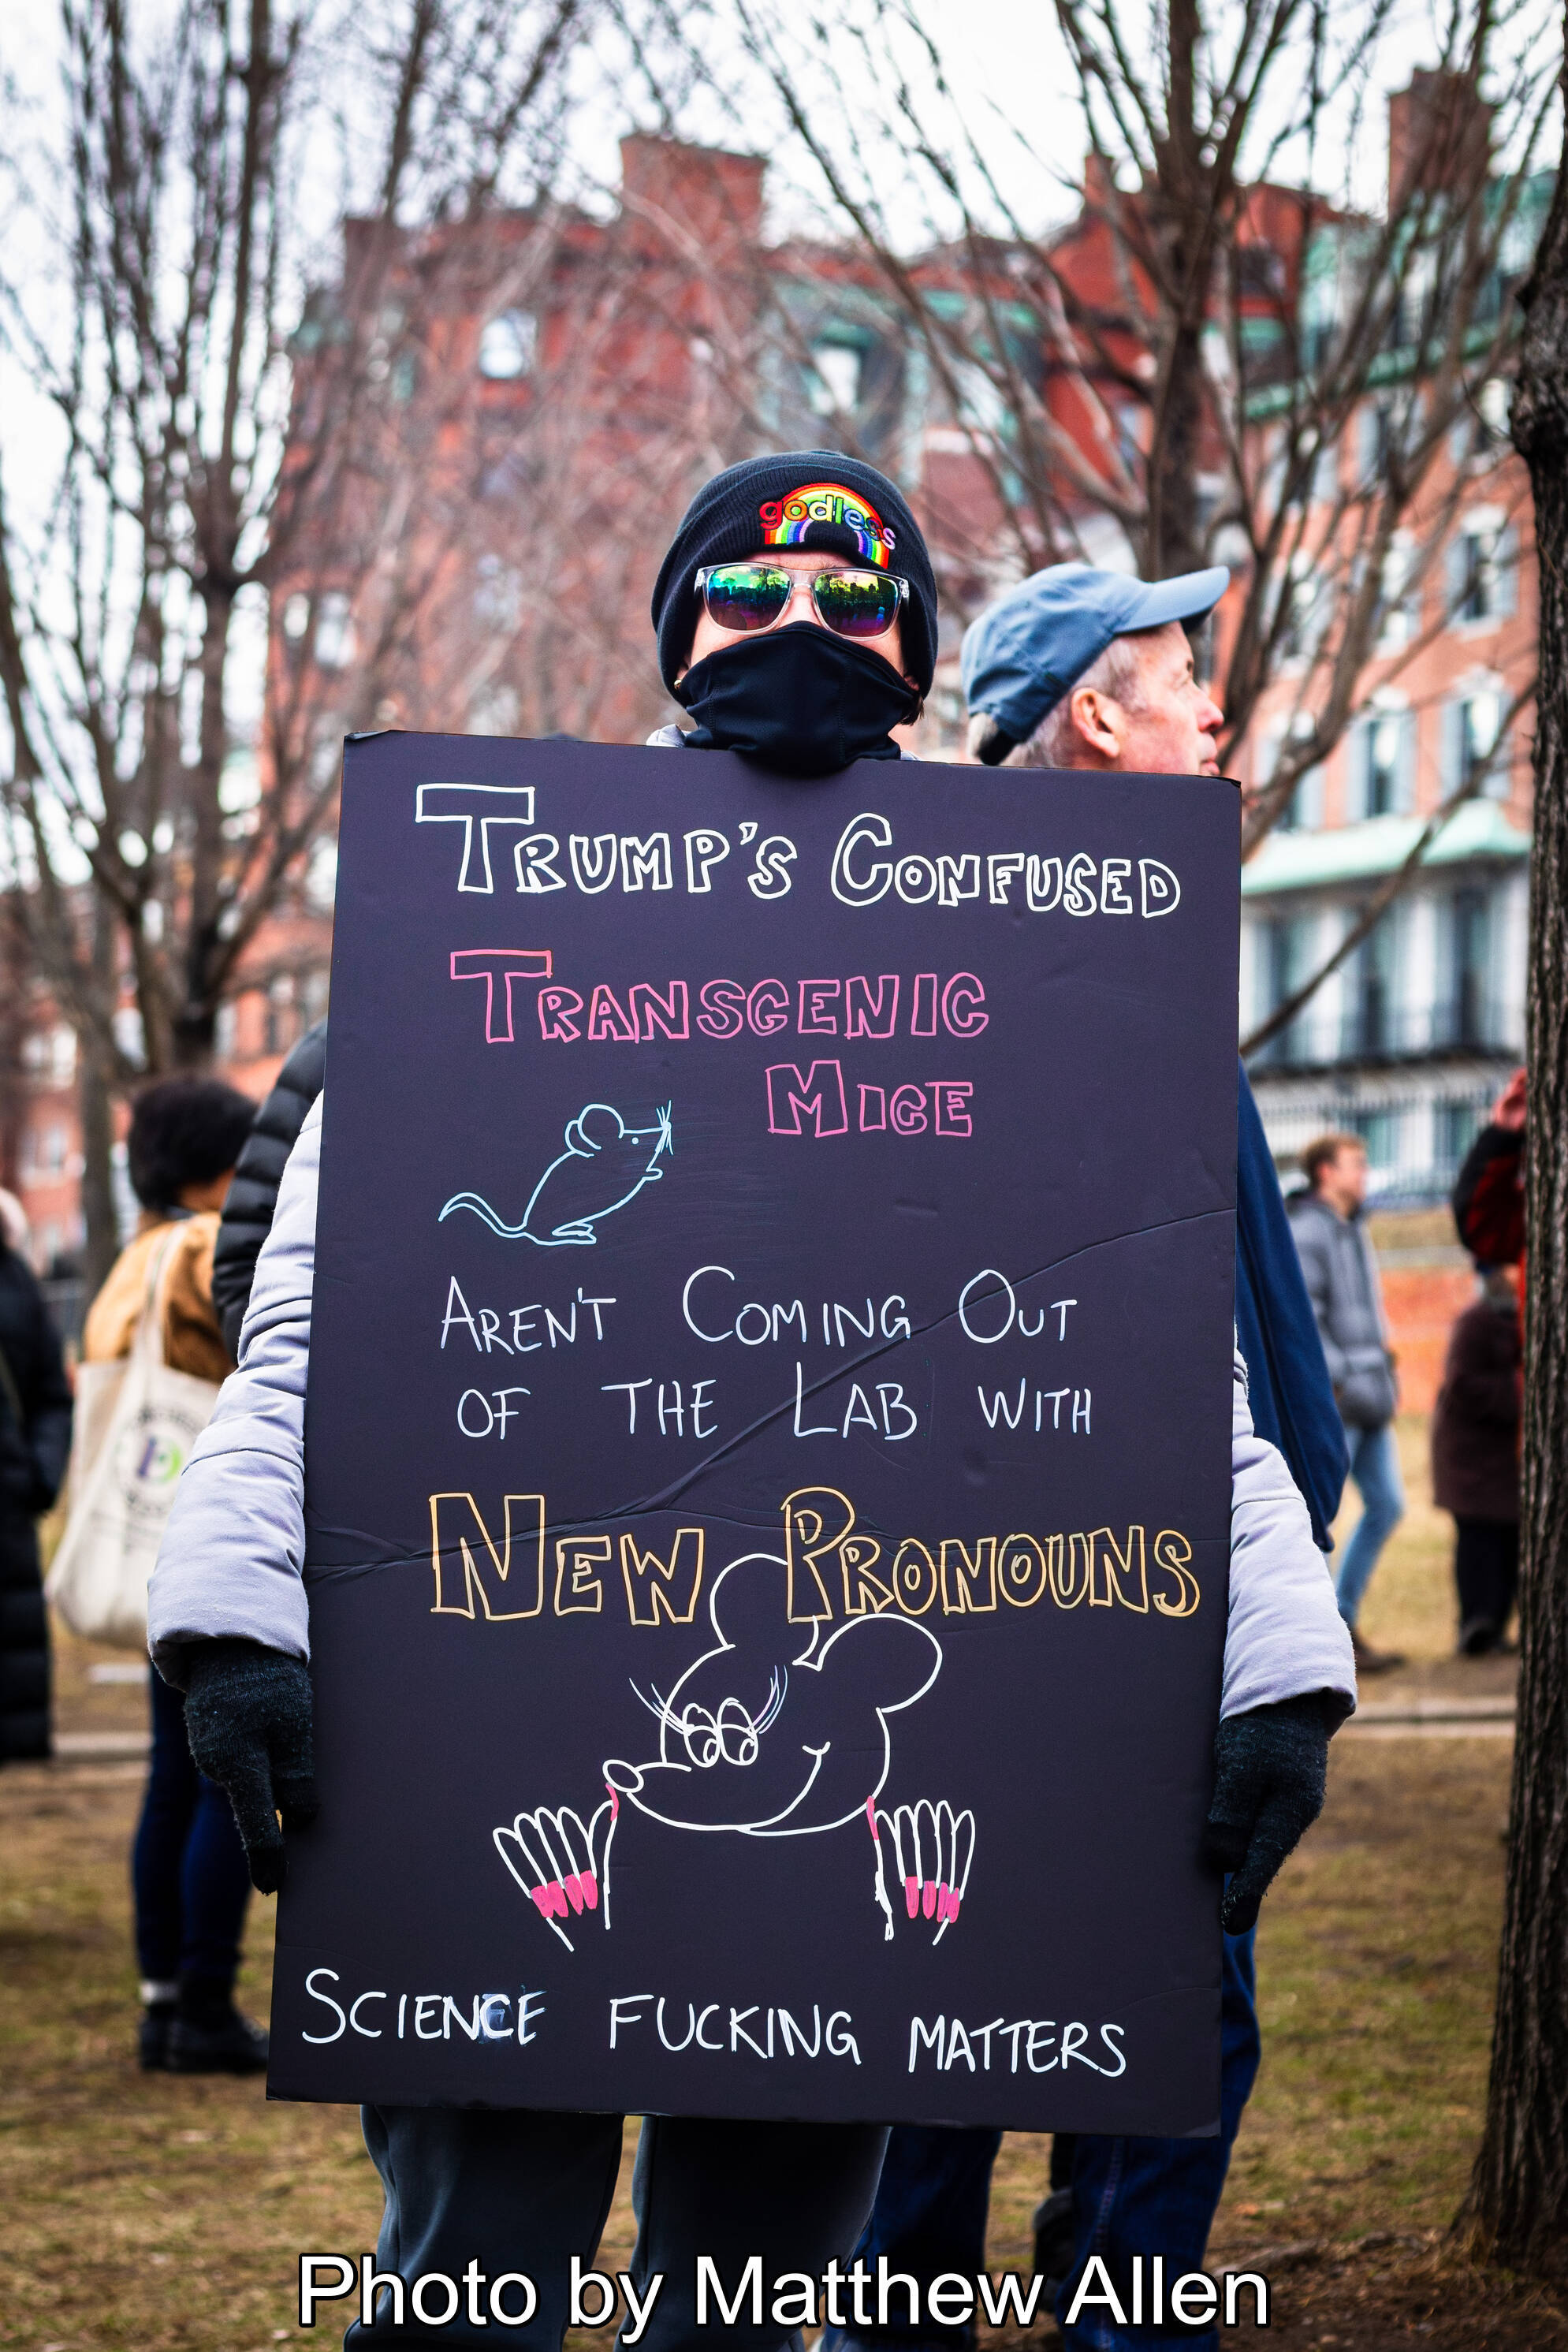 godless
TRUMP'S CONFUSED
TRANSGENIC
MICE
AREN'T COMING OUT
OF THE LAB WITH
NEW PRONOUNS
SCIENCE FUCKING MATTERS
Photo by Matthew Allen